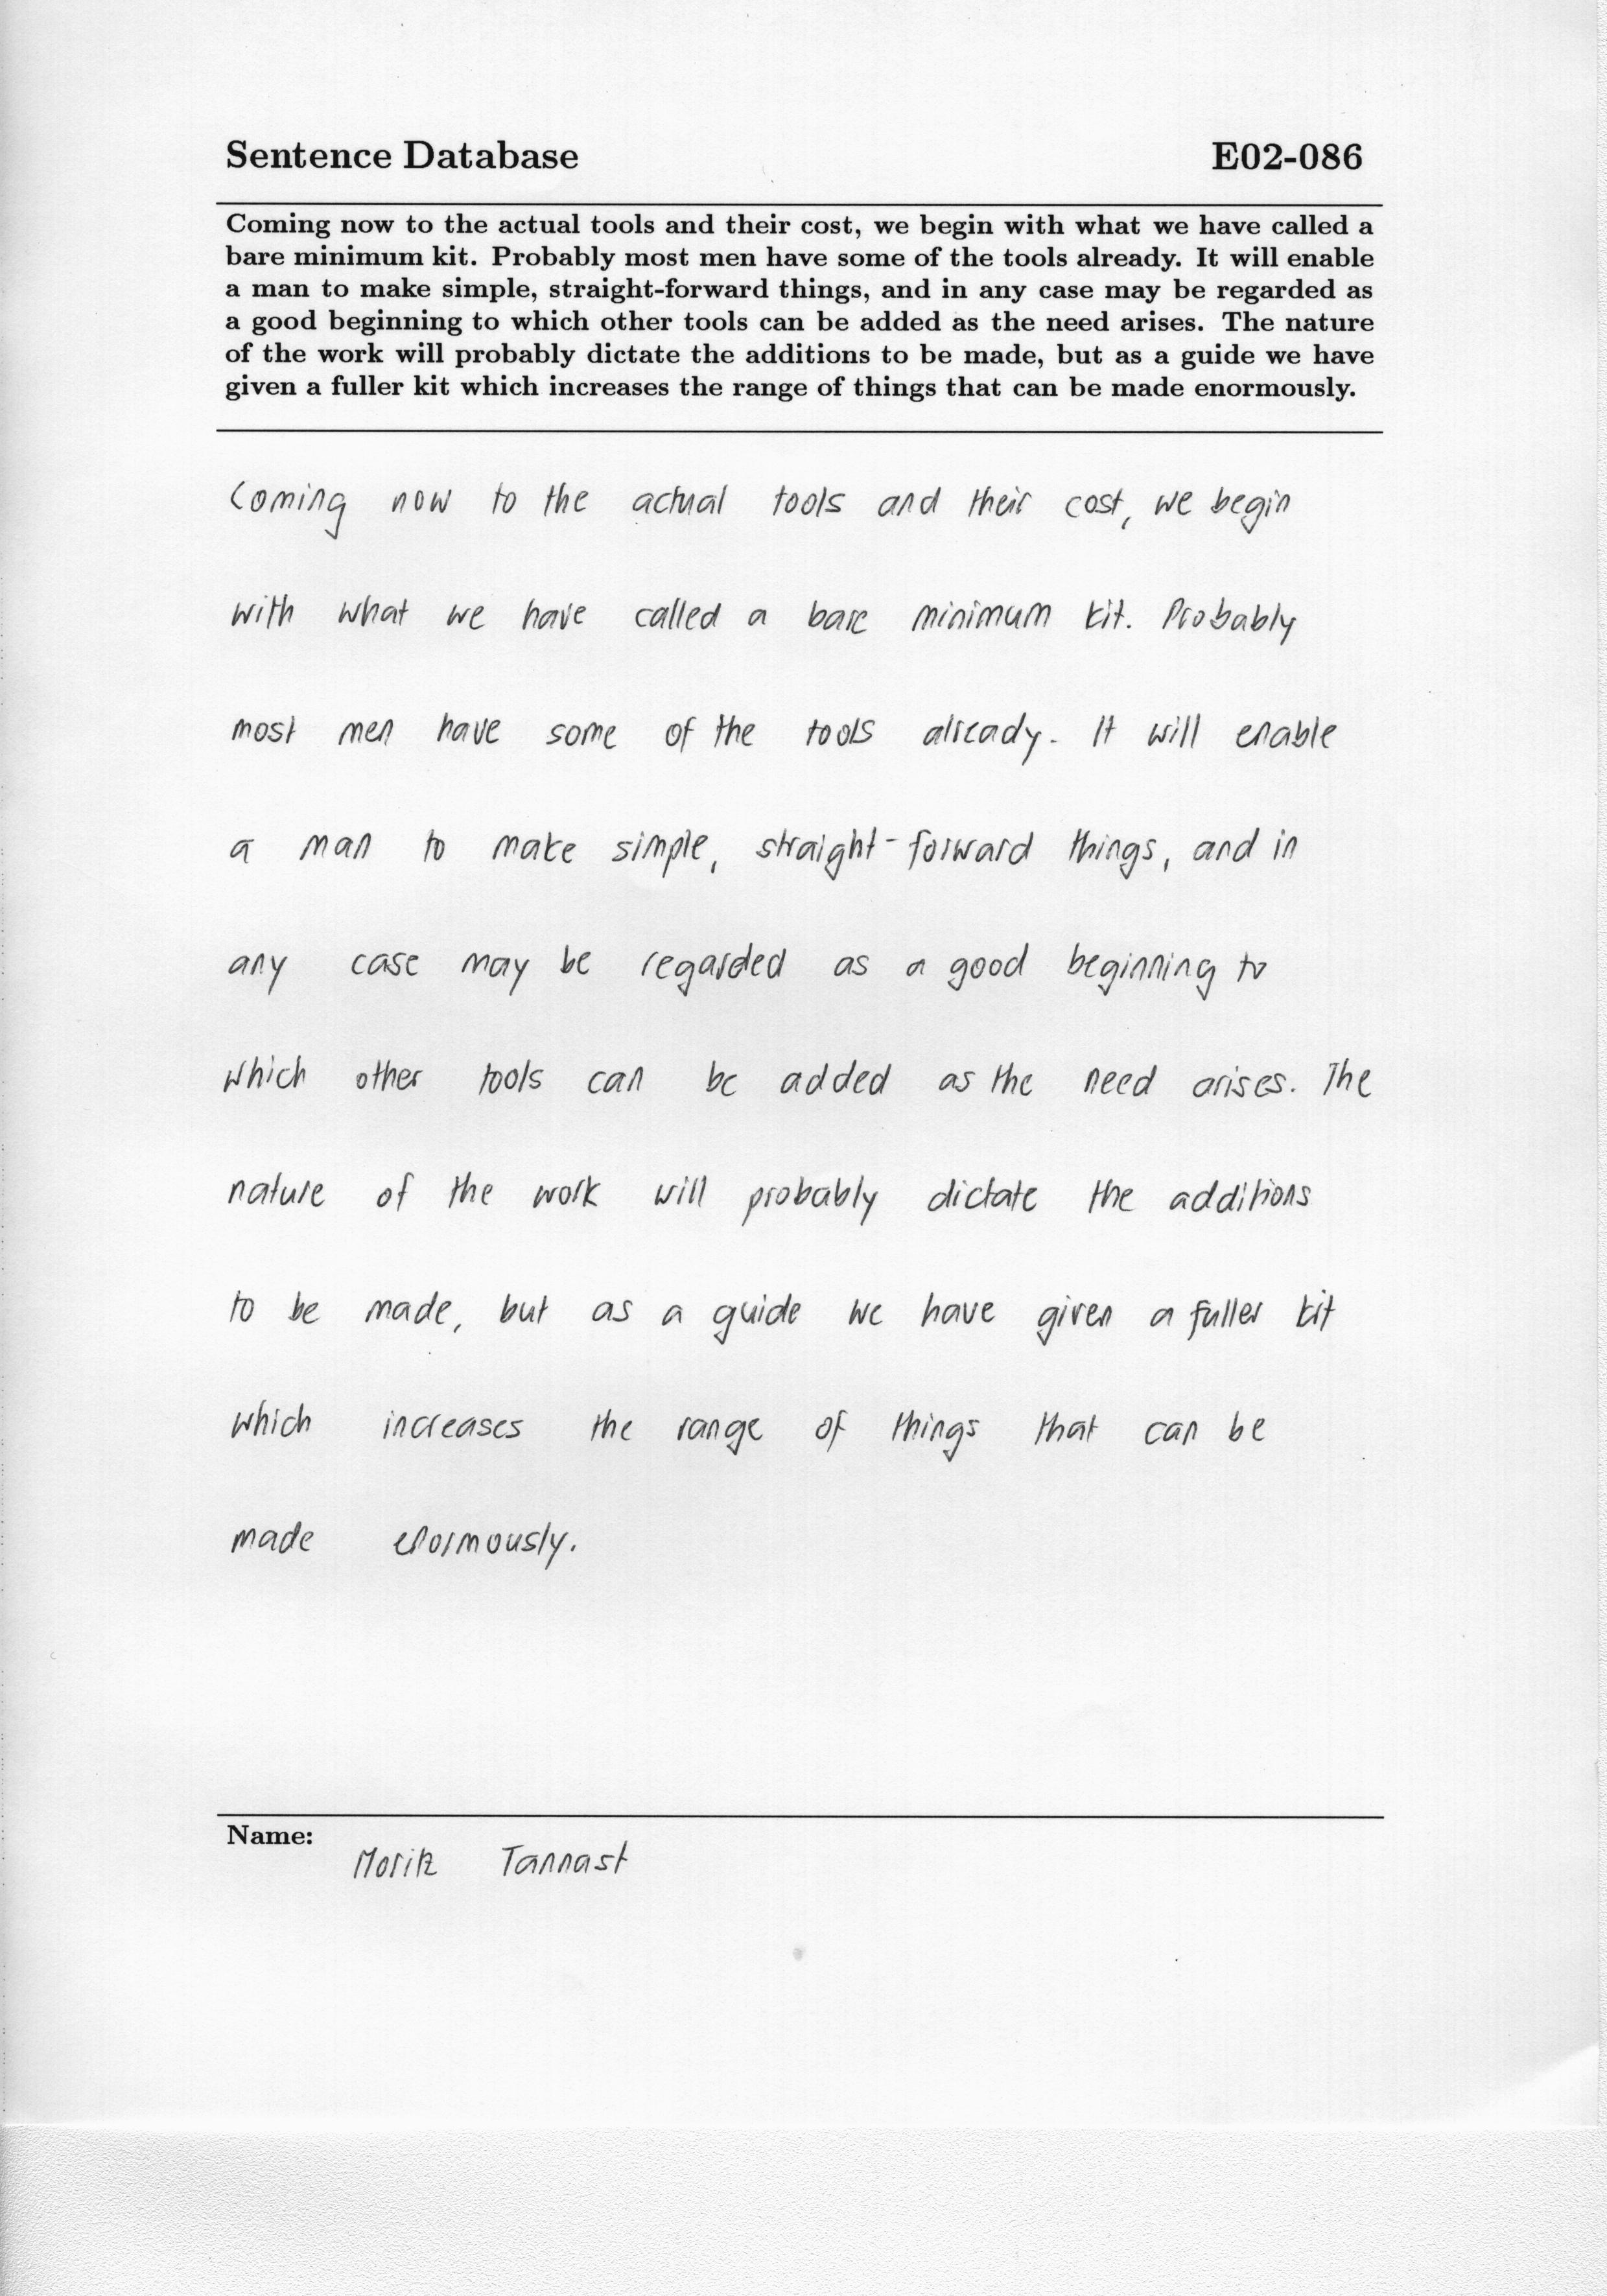 Sentence Database E02-086
Coming now to the actual tools and their cost, we begin with what we have called a
bare minimum kit. Probably most men have some of the tools already. It will enable
a man to make simple, straight-forward things, and in any case may be regarded as
a good beginning to which other tools can be added as the need arises. The nature
of the work will probably dictate the additions to be made, but as a guide we have
given a fuller kit which increases the range of things that can be made enormously.
Coming now to the actual tools and their cost, we begin
with what we have called a bare minimum kit. Probably
most men have some of the tools already. It will enable
a man to make simple, straight-forward things, and in
any case may be regarded as a good beginning to
which other tools can be added as the need arises. The
nature of the work will probably dictate the additions
to be made, but as a guide we have given a fuller kit
which increases the range of things that can be
made enormously.
Name:
Moritz Tannast